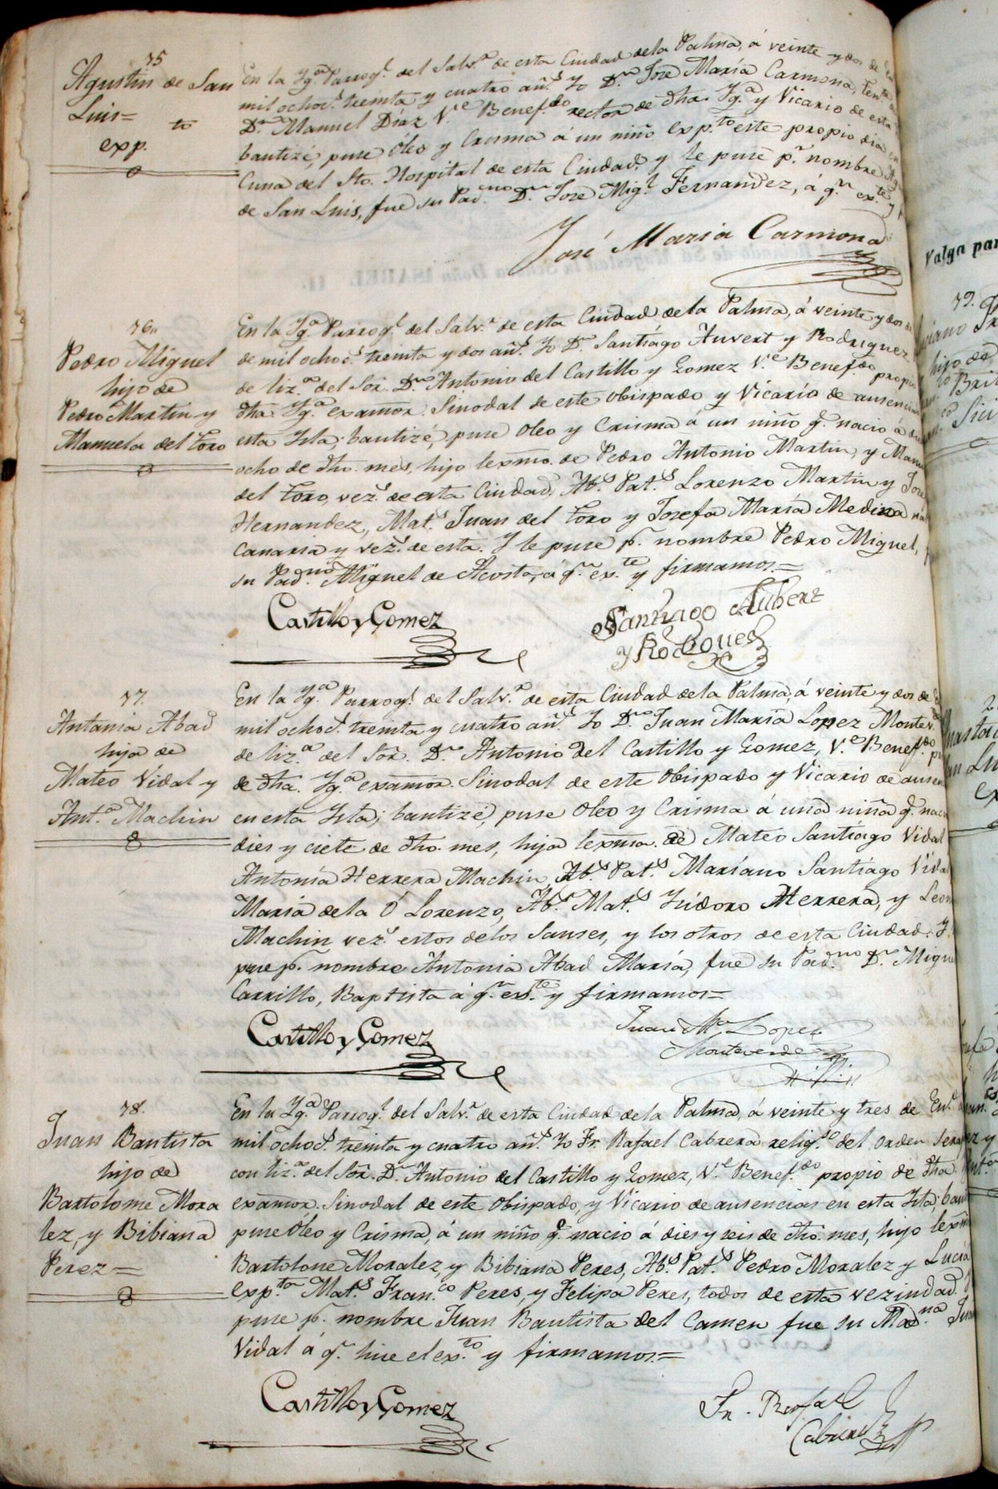 75
Agustin de San
Luis=
exp.to
En la Yg.a Parroq.l del Salv.r de esta Ciudad de la Palma, á veinte y dos de
mil ochoc.s treinta y cuatro añ.s Yo D.n José María Carmona, ten.te
D.n Manuel Diaz V.e Benef.do rector de dha. Yg.a y Vicario de esta
bautizé, puse Oleo y Crisma á un niño exp.to este propio dia
Cuna del Sto. Hospital de esta Ciudad y le puse p.r nombre
de San Luis, fue su Pad.no D.n José Mig.l Fernandez, á q.n ex.té y
José Maria Carmona
76
Pedro Miguel
hijo de
Pedro Martin y
Manuela del Toro
En la Yg.a Parroq.l del Salv.r de esta Ciudad de la Palma, á veinte y dos
de mil ochoc.s treinta y dos añ.s Yo D.n Santiago Auvert y Rodriguez
de liz.a del Sor. D.n Antonio del Castillo y Gomez V.e Benef.do propio
dha. Yg.a examor. Sinodal de este Obispado y Vicario de ausencias
esta Ysla; bautizé, puse Oleo y Crisma a un niño q.e nacio á
ocho de dho. mes, hijo lexmo. de Pedro Antonio Martin, y
del Toro, vez.s de esta Ciudad, Ab.s Pat.s Lorenzo Martin y
Hernandez, Mat.s Juan del Toro y Josefa María Medina
Canaria y vez.s de esta. Y le puse p.r nombre Pedro Miguel,
su Pad.no Miguel de Acosta, á q.n ex.té y firmamos.=
Castillo y Gomez
Santiago Aubert
y Rodriguez
77.
Antonia Abad
hija de
Mateo Vidal y
Ant.a Machin
En la Yg.a Parroq.l del Salv.r de esta Ciudad de la Palma, á veinte y dos de
mil ochoc.s treinta y cuatro añ.s Yo D.n Juan María Lopez Montev.e
de liz.a del Sor. D.n Antonio del Castillo y Gomez, V.e Benef.do
de dha. Yg.a examor. Sinodal de este Obispado y Vicario de
en esta Ysla; bautizé, puse Oleo y Crisma á una niña q.e
dies y ciete de dho. mes, hija lexma. de Mateo Santiago Vidal
Antonia Herrera Machin, Ab.s Pat.s Mariano Santiago
Maria de la O Lorenzo, Ab.s Mat.s Ysidoro Herrera, y
Machin vez.s estos de los Sauses, y los otros de esta Ciudad. Y
puse p.r nombre Antonia Abad María, fue su Pad.no D.n
Carrillo, Baptista á q.n ex.té y firmamos=
Castillo y Gomez
Juan M.a Lopez
Monteverde
78.
Juan Bautista
hijo de
Bartolome Mora
lez, y Bibiana
Perez=
En la Yg.a Parroq.l del Salv.r de esta Ciudad de la Palma, á veinte y tres de En.o
mil ochoc.s treinta y cuatro añ.s Yo Fr. Rafael Cabrera relig.so del orden
con liz.a del Sor. D.n Antonio del Castillo y Gomez, V.e Benef.do propio de dha.
examor. Sinodal de este Obispado, y Vicario de ausencias en esta Ysla;
puse Oleo y Crisma, á un niño q.e nacio á dies y seis de dho. mes, hijo
Bartolome Moralez, y Bibiana Peres, Ab.s Pat.s Pedro Moralez y Lucia
exp.ta Mat.s Fran.co Peres, y Felipa Peres, todos de esta vezindad.
puse p.r nombre Juan Bautista del Carmen fue su Mad.na
Vidal á q.n hice el ex.to y firmamos.=
Castillo y Gomez
Fr. Rafael
Cabrera
Valga par
79.
hijo de